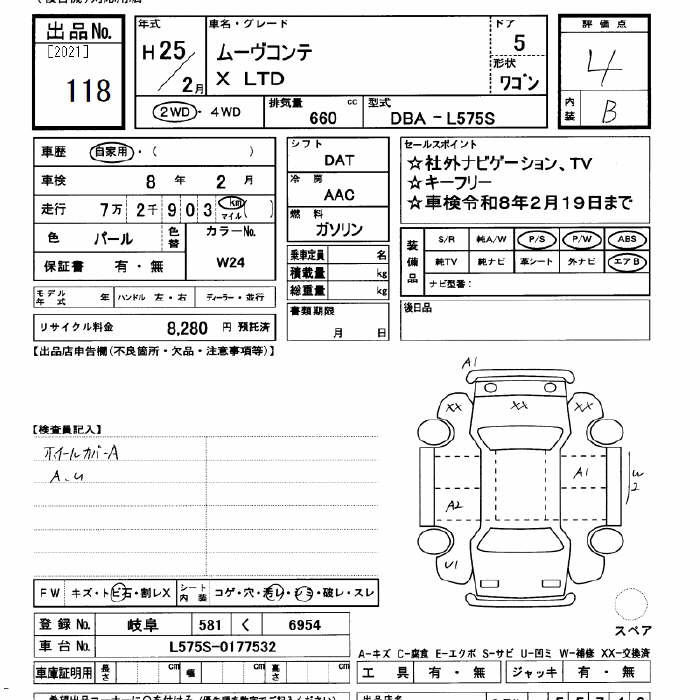 出品No. [2021] 118
年式 H25/2月
車名・グレード ムーヴコンテ X LTD
ドア 5
形状 ワゴン
評価点 4
内装 B
2WD・4WD
排気量 660 cc
型式 DBA-L575S
車歴 自家用・( )
車検 8年 2月
走行 7万 2千 9 0 3 km マイル ( )
色 パール 色替
カラーNo. W24
保証書 有・無
モデル年式 年 ハンドル 左・右 ディーラー・並行
リサイクル料金 8,280 円 預託済
シフト DAT
冷房 AAC
燃料 ガソリン
乗車定員 名
積載量 kg
総重量 kg
書類期限 月 日
セールスポイント
☆社外ナビゲーション、TV
☆キーフリー
☆車検令和8年2月19日まで
装備品 S/R 純A/W P/S P/W ABS
純TV 純ナビ 革シート 外ナビ エアB
ナビ型番:
後日品
【出品店申告欄(不良箇所・欠品・注意事項等)】
【検査員記入】
ホイールカバーA
A、U
A1
XX XX XX
A1
A2
W2
U1
スペア
FW キズ・トビ石・割レX
シート内装 コゲ・穴・汚レ・シミ・破レ・スレ
登録No. 岐阜 581 く 6954
車台No. L575S-0177532
車庫証明用 長さ cm 幅 cm 高さ cm
A-キズ C-腐食 E-エクボ S-サビ U-凹ミ W-補修 XX-交換済
工具 有・無 ジャッキ 有・無
出品店名